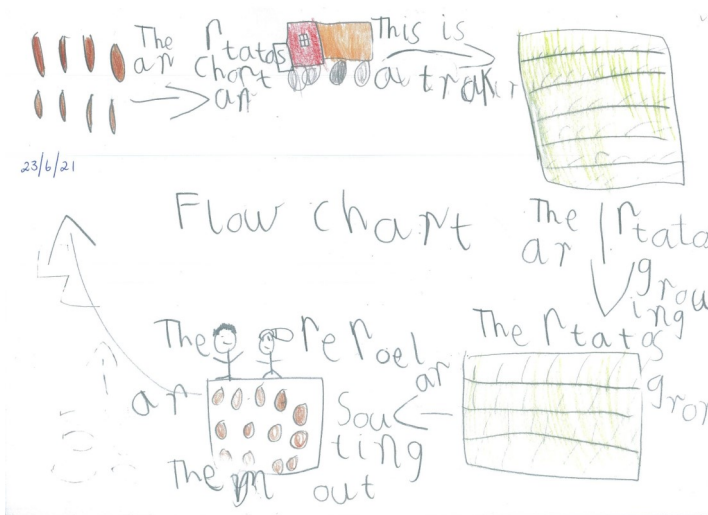 The rtatos
ar chart
ar
This is
a traker
23/6/21
Flow chart
The rtato
ar grou
ing
The rtatos
ar gror
The re roel
ar Sou
ting
The m out